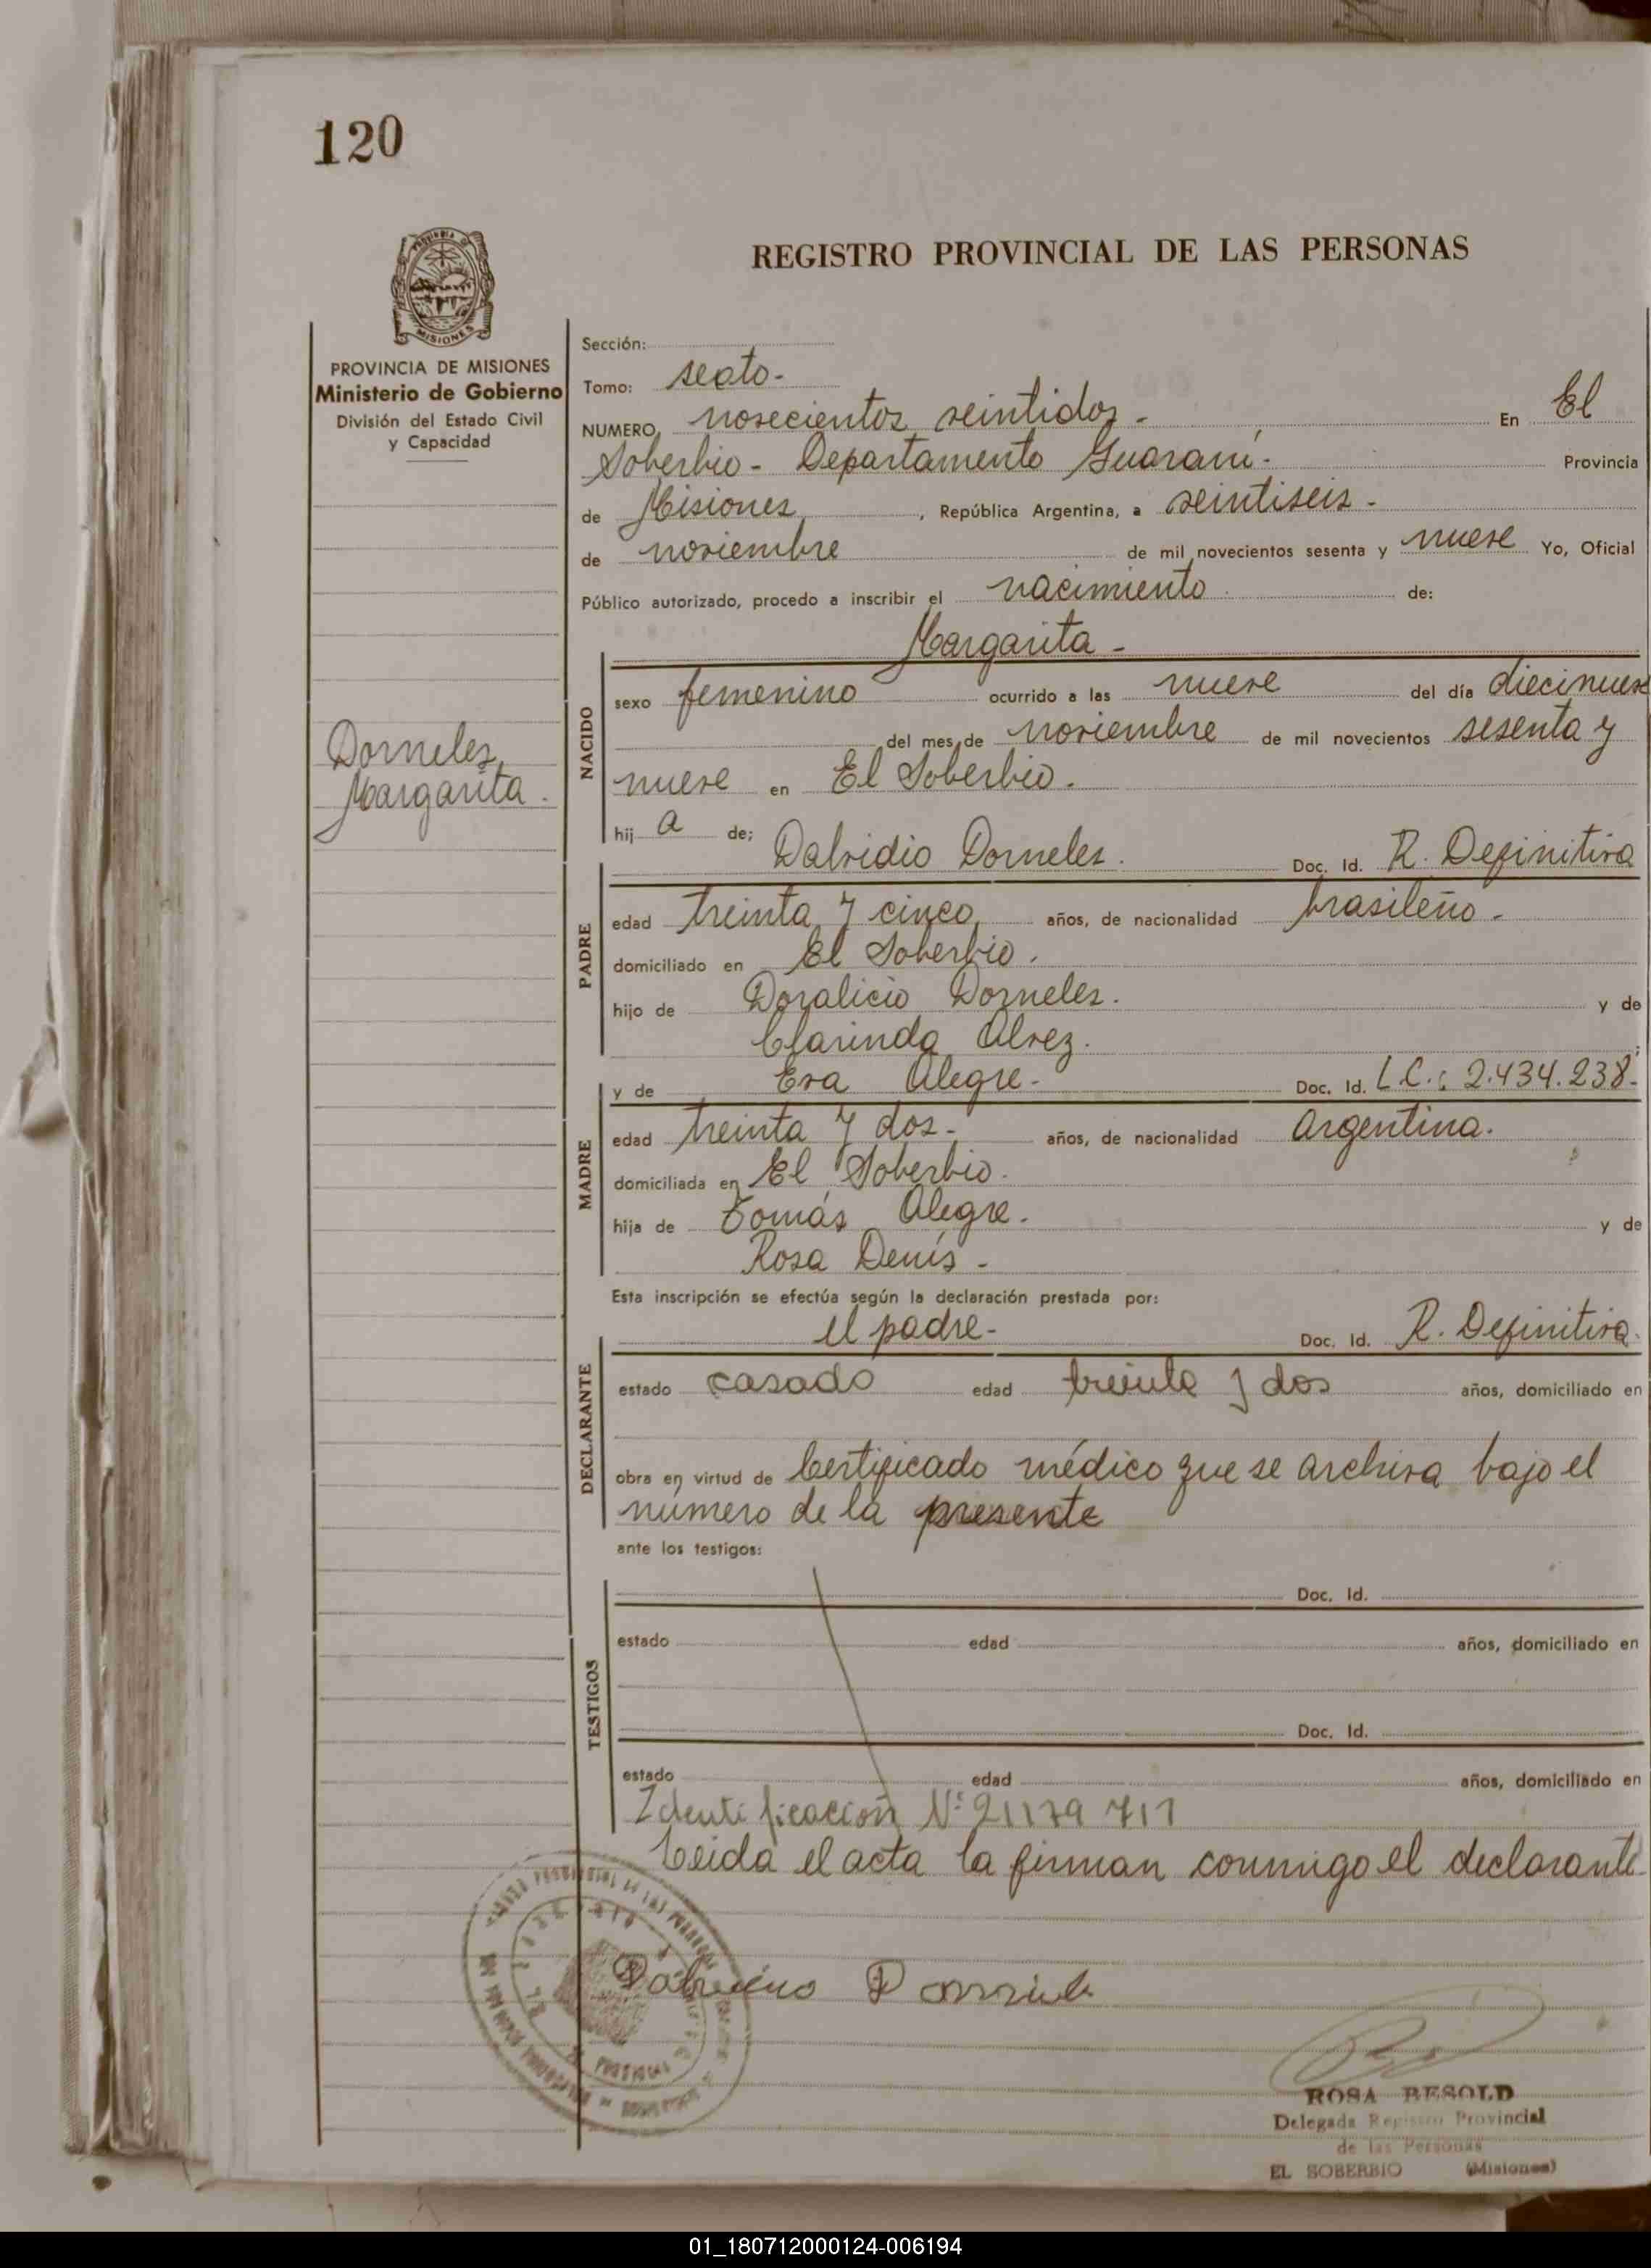 120
REGISTRO PROVINCIAL DE LAS PERSONAS
PROVINCIA DE MISIONES
Ministerio de Gobierno
División del Estado Civil
y Capacidad
Dorneles,
Margarita.
Sección:
Tomo: sexto-
NUMERO novecientos veintidos- En El
Soberbio- Departamento Guaraní- Provincia
de Misiones, República Argentina, a veintiseis-
de noviembre de mil novecientos sesenta y nueve Yo, Oficial
Público autorizado, procedo a inscribir el nacimiento de:
Margarita-
NACIDO
sexo femenino ocurrido a las nueve del día diecinueve
del mes de noviembre de mil novecientos sesenta y
nueve en El Soberbio.
hij a de;
PADRE
Dalvidio Dorneles. Doc. Id. R. Definitiva
edad treinta y cinco años, de nacionalidad brasileño-
domiciliado en El Soberbio.
hijo de Doralicio Dorneles. y de
Clarinda Alvez. ;
MADRE
y de Eva Alegre- Doc. Id. L.C.: 2.434.238-
edad treinta y dos- años, de nacionalidad argentina.
domiciliada en El Soberbio.
hija de Tomás Alegre. y de
Rosa Denis-
Esta inscripción se efectúa según la declaración prestada por:
DECLARANTE
el padre- Doc. Id. R. Definitiva.
estado casado edad treinta y dos años, domiciliado en
obra en virtud de Certificado médico que se archiva bajo el
número de la presente
ante los testigos:
TESTIGOS
Doc. Id.
estado edad años, domiciliado en
Doc. Id.
estado edad años, domiciliado en
Identificacion Nº 21179 711
Leida el acta la firman conmigo el declarante
ROSA BESOLD
Delegada Registro Provincial
de las Personas
EL SOBERBIO (Misiones)
01_180712000124-006194